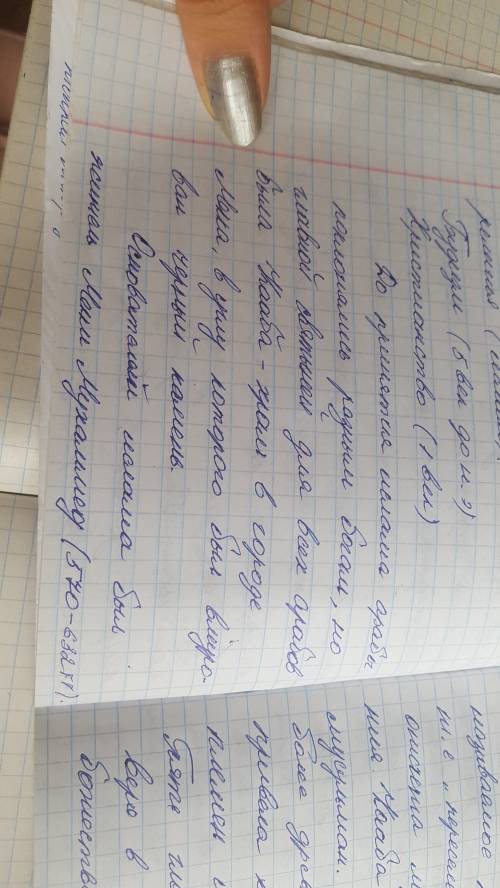 Буддизм (5 век до н.э)
Христианство (1 век)
До принятия ислама арабы
поклонялись разным богам, но
главной святыней для всех арабов
была Кааба - храм в городе
Мека, в углу которого был вмуро-
ван черный камень.
Основателем ислама был
житель Меки Мухаммед (570-632 гг).
называемое
ния. Кааба
мусульман.
более древ
племен
Пять
вера в
божеств